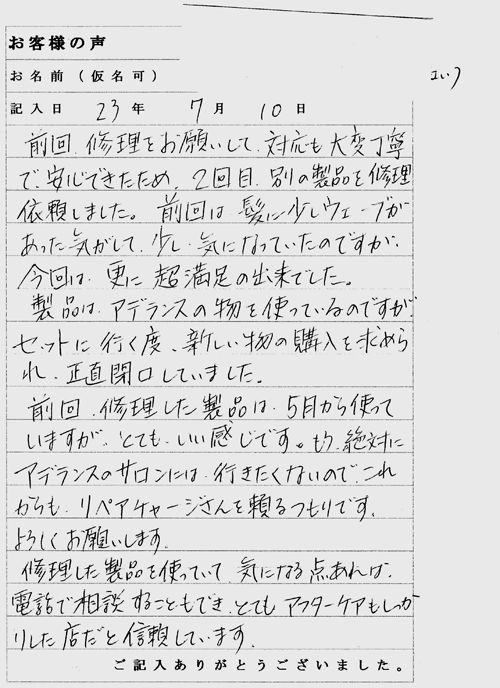 お客様の声
お名前（仮名可）
記入日 23年 7月 10日
前回、修理をお願いして、対応も大変丁寧
で、安心できたため、2回目、別の製品を修理
依頼しました。前回は髪に少しウェーブが
あった気がして、少し、気になっていたのですが、
今回は、更に超満足の出来でした。
製品は、アデランスの物を使っているのですが、
セットに行く度、新しい物の購入を求めら
れ、正直閉口していました。
前回、修理した製品は、5月から使って
いますが、とても、いい感じです。もう、絶対に
アデランスのサロンには、行きたくないので、これ
からも、リペアチャージさんを頼るつもりです。
よろしくお願いします。
修理した製品を使っていて、気になる点あれば、
電話で相談することもでき、とてもアフターケアもしっか
りした店だと信頼しています。
ご記入ありがとうございました。